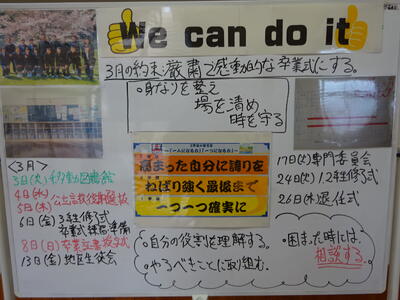 We can do it
3月の約束:厳粛で感動的な卒業式にする。
○身なりを整え
場を清め
時を守る
決まった自分に誇りを
ねばり強く最後まで
一つ一つ確実に
<3月>
3日(火)移動図書館
4日(水)
5日(木)公立高校後期選抜
6日(金)3年生修了式
卒業式練習準備
8日(日)卒業証書授与式
13日(金)地区生徒会
17日(火)専門委員会
24日(火)1,2年生修了式
26日(木)退任式
○自分の役割を理解する。
○やるべきことに取り組む。
○困まった時には、
相談する